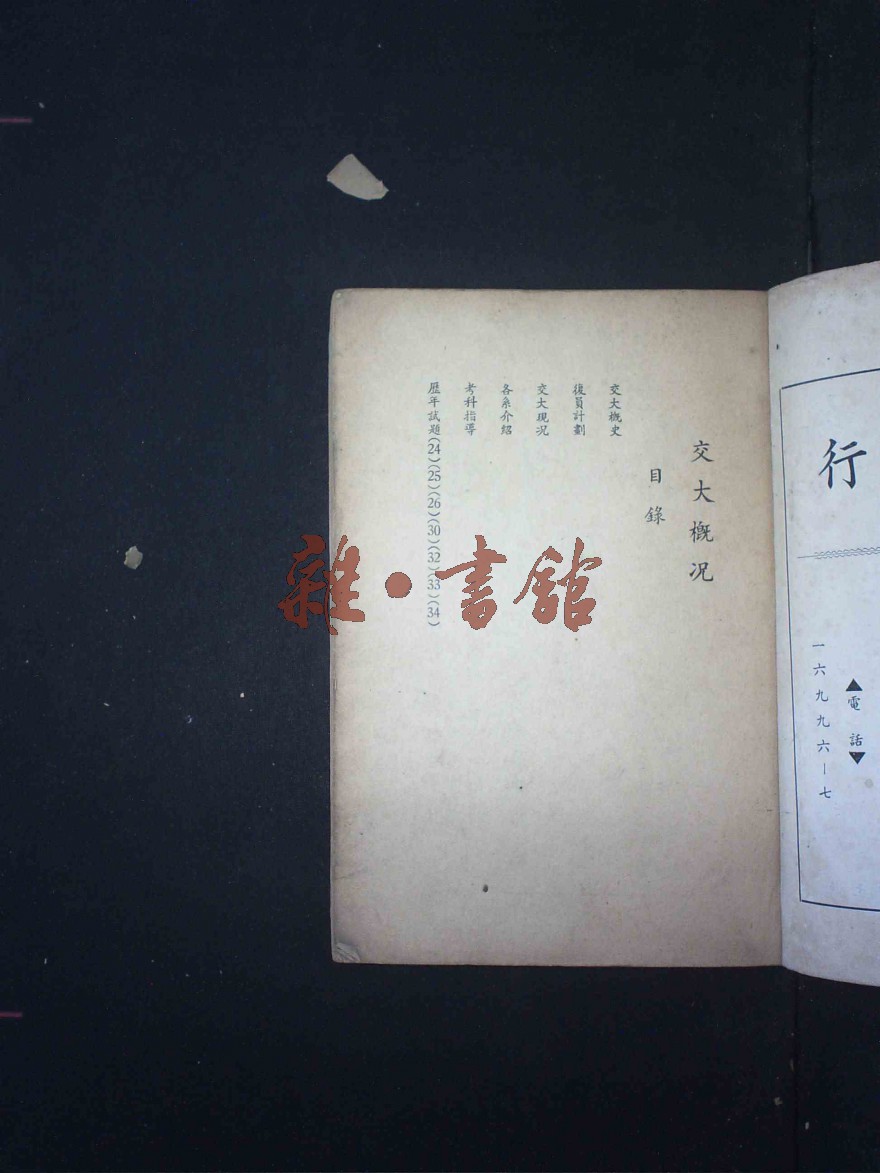 行
▲電話▼
一六九九六—七
交大概況
目錄
交大概史
復員計劃
交大現況
各系介紹
考科指導
歷年試題(24)(25)(26)(30)(32)(33)(34)
雜·書館